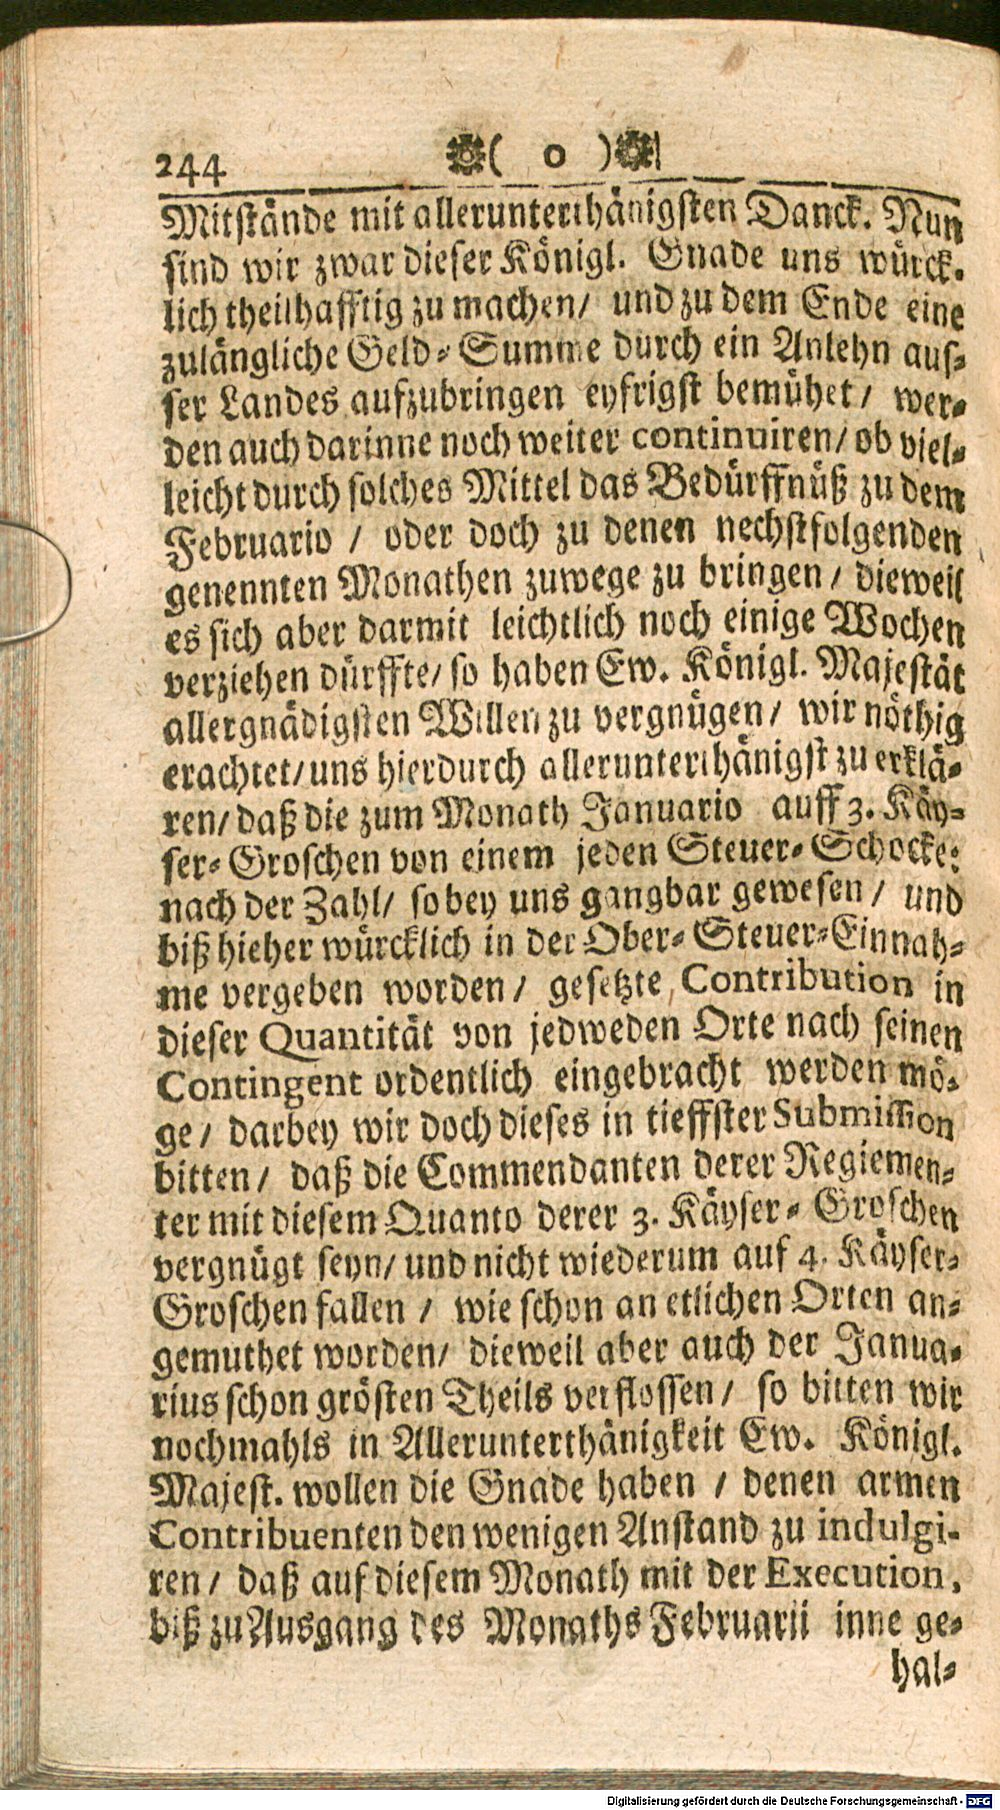 244 ( o )
Mitstände mit allerunterthänigsten Danck. Nun
sind wir zwar dieser Königl. Gnade uns würck-
lich theilhafftig zu machen/ und zu dem Ende eine
zulängliche Geld-Summe durch ein Anlehn aus-
ser Landes aufzubringen eyfrigst bemühet/ wer-
den auch darinne noch weiter continuiren/ ob viel-
leicht durch solches Mittel das Bedürffnüß zu dem
Februario / oder doch zu denen nechstfolgenden
genennten Monathen zuwege zu bringen/ dieweil
es sich aber darmit leichtlich noch einige Wochen
verziehen dürffte/ so haben Ew. Königl. Majestät
allergnädigsten Willen zu vergnügen/ wir nöthig
erachtet/ uns hierdurch allerunterthänigst zu erklä-
ren/ daß die zum Monath Januario auff 3. Käy-
ser-Groschen von einem jeden Steuer-Schocke:
nach der Zahl/ so bey uns gangbar gewesen/ und
biß hieher würcklich in der Ober-Steuer-Einnah-
me vergeben worden/ gesetzte Contribution in
dieser Quantität von jedweden Orte nach seinen
Contingent ordentlich eingebracht werden mö-
ge/ darbey wir doch dieses in tieffster Submission
bitten/ daß die Commendanten derer Regiemen-
ter mit diesem Quanto derer 3. Käyser-Groschen
vergnügt seyn/ und nicht wiederum auf 4. Käyser-
Groschen fallen / wie schon an etlichen Orten an-
gemuthet worden/ dieweil aber auch der Janua-
rius schon grösten Theils verflossen/ so bitten wir
nochmahls in Allerunterthänigkeit Ew. Königl.
Majest. wollen die Gnade haben / denen armen
Contribuenten den wenigen Anstand zu indulgi-
ren/ daß auf diesem Monath mit der Execution,
biß zu Ausgang des Monaths Februarii inne ge-
hal-
Digitalisierung gefördert durch die Deutsche Forschungsgemeinschaft - DFG